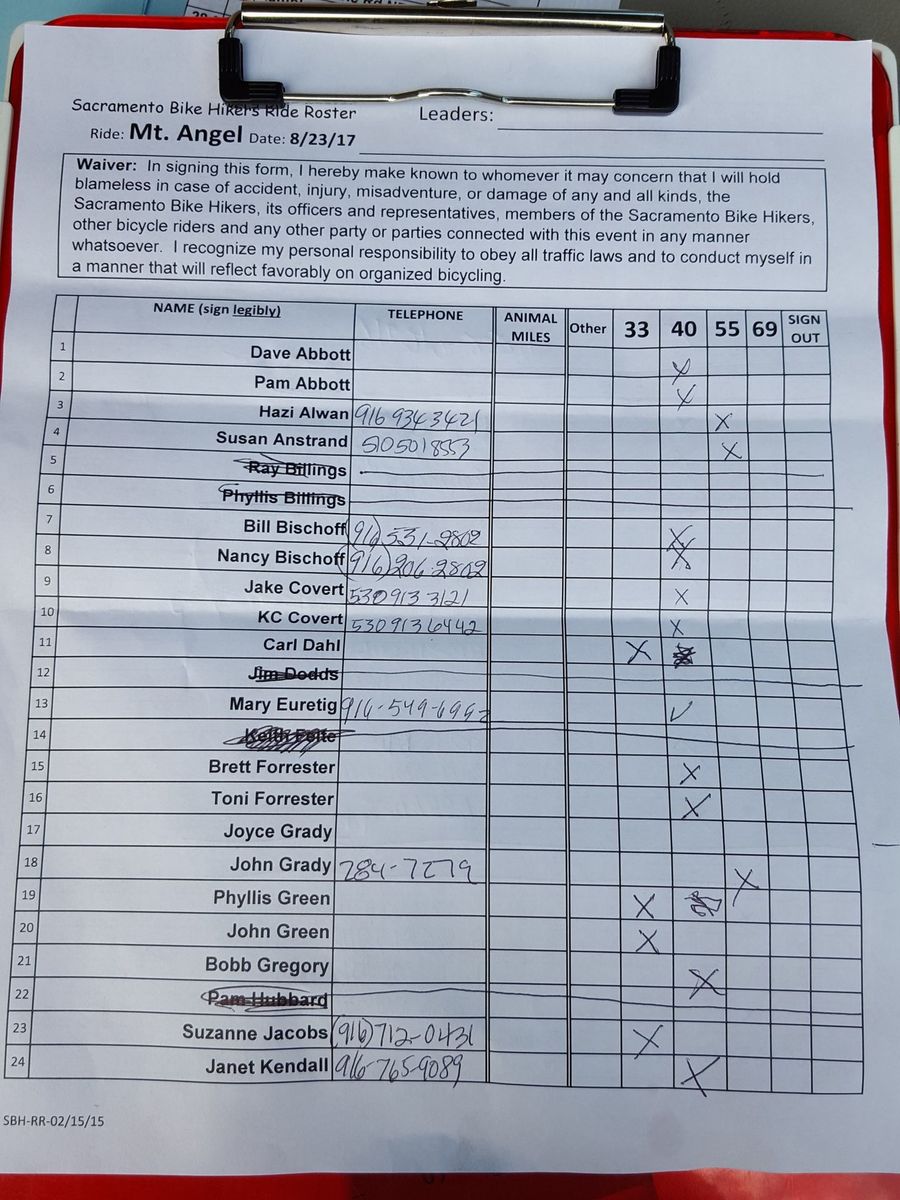 Sacramento Bike Hikers Ride Roster Leaders:
Ride: Mt. Angel Date: 8/23/17
Waiver: In signing this form, I hereby make known to whomever it may concern that I will hold
blameless in case of accident, injury, misadventure, or damage of any and all kinds, the
Sacramento Bike Hikers, its officers and representatives, members of the Sacramento Bike Hikers,
other bicycle riders and any other party or parties connected with this event in any manner
whatsoever. I recognize my personal responsibility to obey all traffic laws and to conduct myself in
a manner that will reflect favorably on organized bicycling.
NAME (sign legibly) TELEPHONE ANIMAL MILES Other 33 40 55 69 SIGN OUT
1 Dave Abbott X
2 Pam Abbott X
3 Hazi Alwan 916 934 3421 X
4 Susan Anstrand 5105018553 X
5 Ray Billings
6 Phyllis Billings
7 Bill Bischoff (916) 531-2802 X
8 Nancy Bischoff (916) 206-2802 X
9 Jake Covert 530 913 3121 X
10 KC Covert 530 913 6442 X
11 Carl Dahl X
12 Jim Dodds
13 Mary Euretig 916-549-6992 ✓
14 Keith
15 Brett Forrester X
16 Toni Forrester X
17 Joyce Grady
18 John Grady 784-7279 X
19 Phyllis Green X
20 John Green X
21 Bobb Gregory X
22 Pam Hubbard
23 Suzanne Jacobs (916) 712-0431 X
24 Janet Kendall 916-765-9089 X
SBH-RR-02/15/15